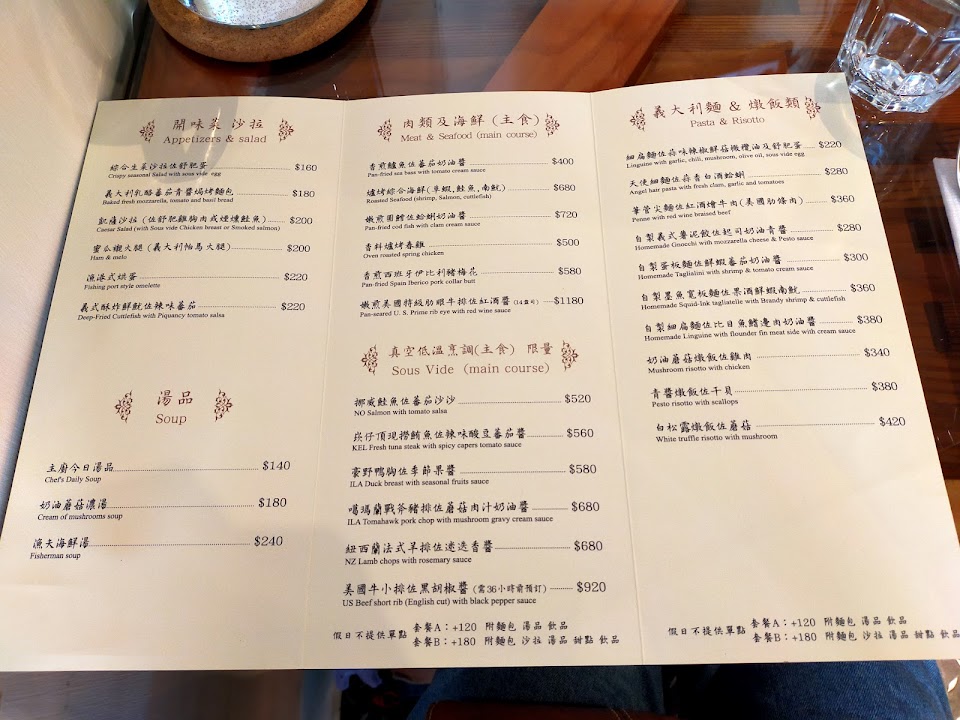 開味菜 沙拉
Appetizers & salad
綜合生菜沙拉佐舒肥蛋 $160
Crispy seasonal Salad with sous vide egg
義大利乳酪蕃茄青醬焗烤麵包 $180
Baked fresh mozzarella, tomato and basil bread
凱薩沙拉 (佐舒肥雞胸肉或煙燻鮭魚) $200
Caesar Salad (with Sous vide Chicken breast or Smoked salmon)
蜜瓜嫩火腿 (義大利帕馬火腿) $200
Ham & melo
漁港式烘蛋 $220
Fishing port style omelette
義式酥炸鮮魷佐辣味蕃茄 $220
Deep-Fried Cuttlefish with Piquancy tomato salsa
湯品
Soup
主廚今日湯品 $140
Chef's Daily Soup
奶油蘑菇濃湯 $180
Cream of mushrooms soup
漁夫海鮮湯 $240
Fisherman soup
肉類及海鮮 (主食)
Meat & Seafood (main course)
香煎鱸魚佐蕃茄奶油醬 $400
Pan-fried sea bass with tomato cream sauce
爐烤綜合海鮮(草蝦,鮭魚,南魷) $680
Roasted Seafood (shrimp, Salmon, cuttlefish)
嫩煎圓鱈佐蛤蜊奶油醬 $720
Pan-fried cod fish with clam cream sauce
香料爐烤春雞 $500
Oven roasted spring chicken
香煎西班牙伊比利豬梅花 $580
Pan-fried Spain Iberico pork collar butt
嫩煎美國特級肋眼牛排佐紅酒醬 (14盎司) $1180
Pan-seared U. S. Prime rib eye with red wine sauce
真空低溫烹調(主食) 限量
Sous Vide (main course)
挪威鮭魚佐蕃茄沙沙 $520
NO Salmon with tomato salsa
崁仔頂現撈鮪魚佐辣味酸豆蕃茄醬 $560
KEL Fresh tuna steak with spicy capers tomato sauce
豪野鴨胸佐季節果醬 $580
ILA Duck breast with seasonal fruits sauce
噶瑪蘭戰斧豬排佐蘑菇肉汁奶油醬 $680
ILA Tomahawk pork chop with mushroom gravy cream sauce
紐西蘭法式羊排佐迷迭香醬 $680
NZ Lamb chops with rosemary sauce
美國牛小排佐黑胡椒醬 (需36小時前預訂) $920
US Beef short rib (English cut) with black pepper sauce
假日不提供單點 套餐A：+120 附麵包 湯品 飲品
套餐B：+180 附麵包 沙拉 湯品 甜點 飲品
義大利麵 & 燉飯類
Pasta & Risotto
細扁麵佐蒜味辣椒鮮菇橄欖油及舒肥蛋 $220
Linguine with garlic, chili, mushroom, olive oil, sous vide egg
天使細麵佐蒜香白酒蛤蜊 $280
Angel hair pasta with fresh clam, garlic and tomatoes
筆管尖麵佐紅酒燴牛肉(美國肋條肉) $360
Penne with red wine braised beef
自製義式薯泥餃佐起司奶油青醬 $280
Homemade Gnocchi with mozzarella cheese & Pesto sauce
自製蛋板麵佐鮮蝦蕃茄奶油醬 $300
Homemade Taglialini with shrimp & tomato cream sauce
自製墨魚寬板麵佐果酒鮮蝦南魷 $360
Homemade Squid-Ink tagliatelle with Brandy shrimp & cuttlefish
自製細扁麵佐比目魚鰭邊肉奶油醬 $380
Homemade Linguine with flounder fin meat side with cream sauce
奶油蘑菇燉飯佐雞肉 $340
Mushroom risotto with chicken
青醬燉飯佐干貝 $380
Pesto risotto with scallops
白松露燉飯佐蘑菇 $420
White truffle risotto with mushroom
假日不提供單點 套餐A：+120 附麵包 湯品 飲品
套餐B：+180 附麵包 沙拉 湯品 甜點 飲品